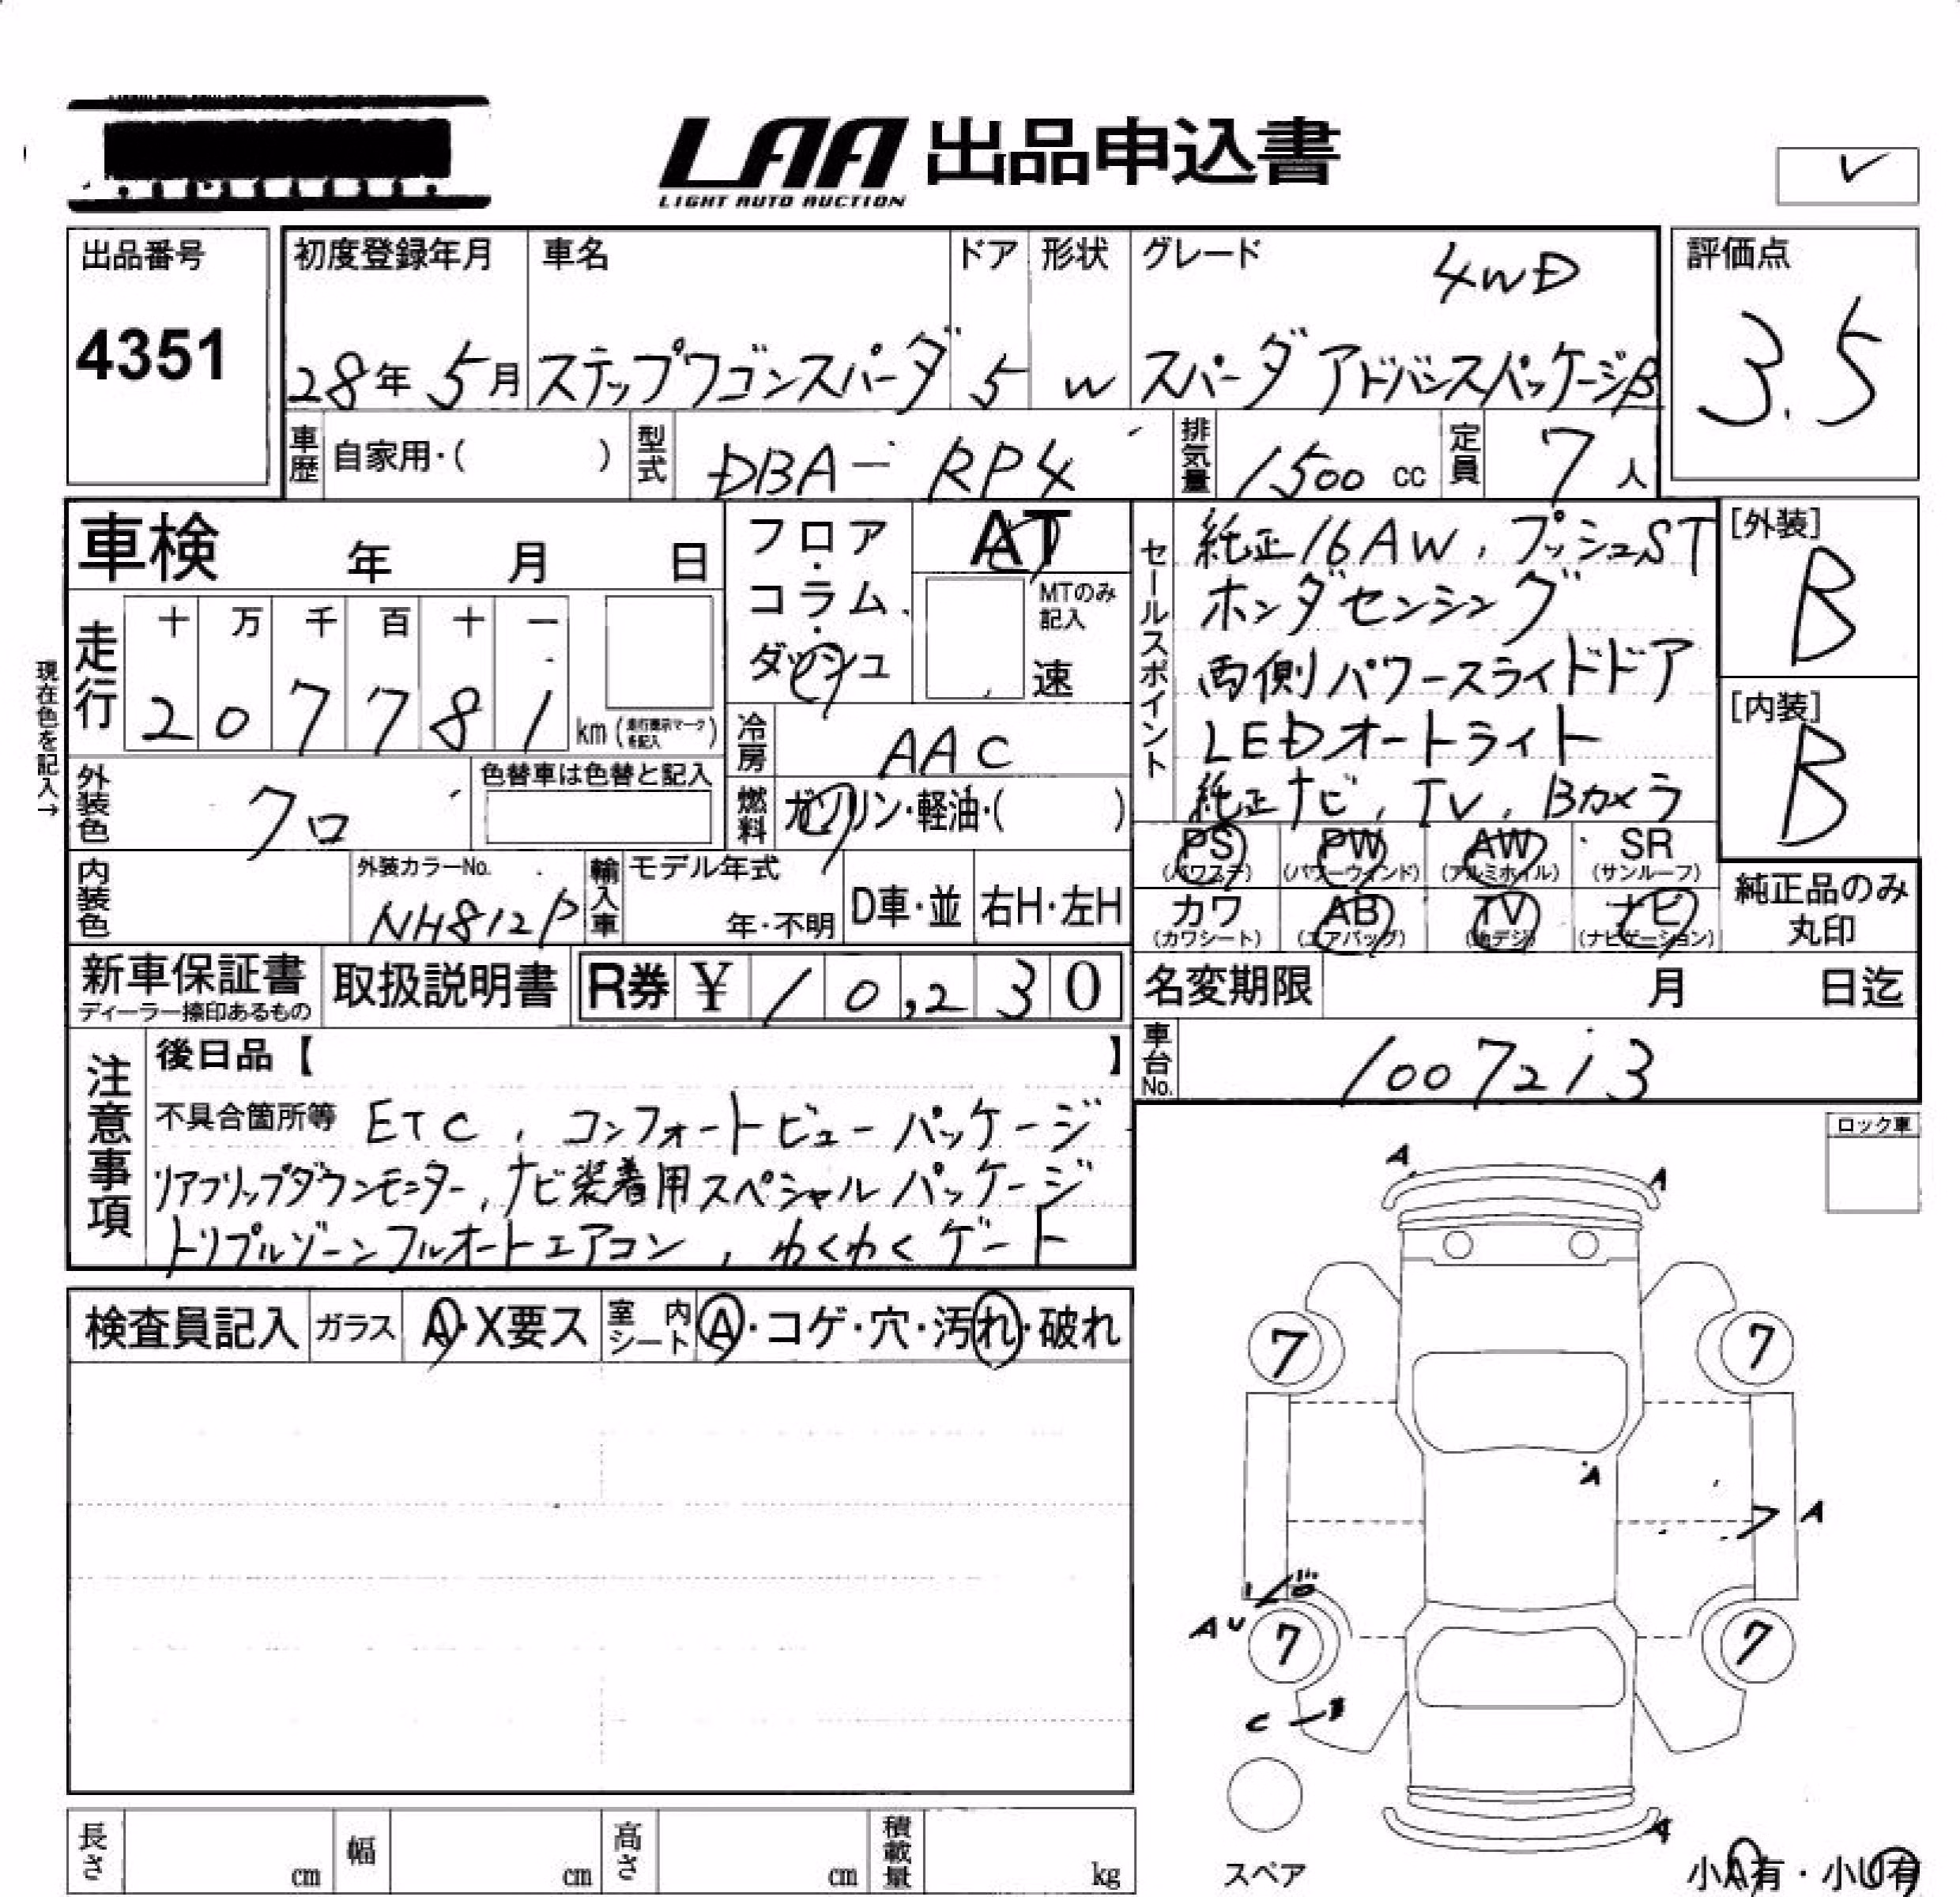 LAA 出品申込書
LIGHT AUTO AUCTION
出品番号
4351
初度登録年月
28年 5月
車名
ステップワゴンスパーダ
ドア
5
形状
W
グレード
4WD
スパーダ アドバンスパッケージβ
評価点
3.5
車歴 自家用・( )
型式 DBA-RP4
排気量 1500 cc
定員 7 人
車検 年 月 日
フロア・コラム・ダッシュ
AT
MTのみ記入
速
セールスポイント
純正16AW, プッシュST
ホンダセンシング
両側パワースライドドア
LEDオートライト
純正ナビ, TV, Bカメラ
[外装]
B
[内装]
B
現在色を記入→
走行
十 万 千 百 十 一
2 0 7 7 8 1
km(走行表示マークを記入)
冷房 AAC
燃料 ガソリン・軽油・( )
外装色 クロ
色替車は色替と記入
内装色
外装カラーNo.
NH812P
輸入車
モデル年式
年・不明
D車・並
右H・左H
PS (パワステ)
PW (パワーウィンド)
AW (アルミホイル)
SR (サンルーフ)
カワ (カワシート)
AB (エアバッグ)
TV (地デジ)
ナビ (ナビゲーション)
純正品のみ丸印
新車保証書
ディーラー捺印あるもの
取扱説明書
R券 ¥ 10,230
名変期限 月 日迄
車台No. 1007213
注意事項
後日品【 】
不具合箇所等 ETC, コンフォートビューパッケージ
リアフリップダウンモニター, ナビ装着用スペシャルパッケージ
トリプルゾーンフルオートエアコン, わくわくゲート
ロック車
検査員記入
ガラス A・X要ス
室内シート A・コゲ・穴・汚れ・破れ
A
A
7
7
A
A
AU
7
7
C
A
スペア
小A有・小U有
長さ cm
幅 cm
高さ cm
積載量 kg